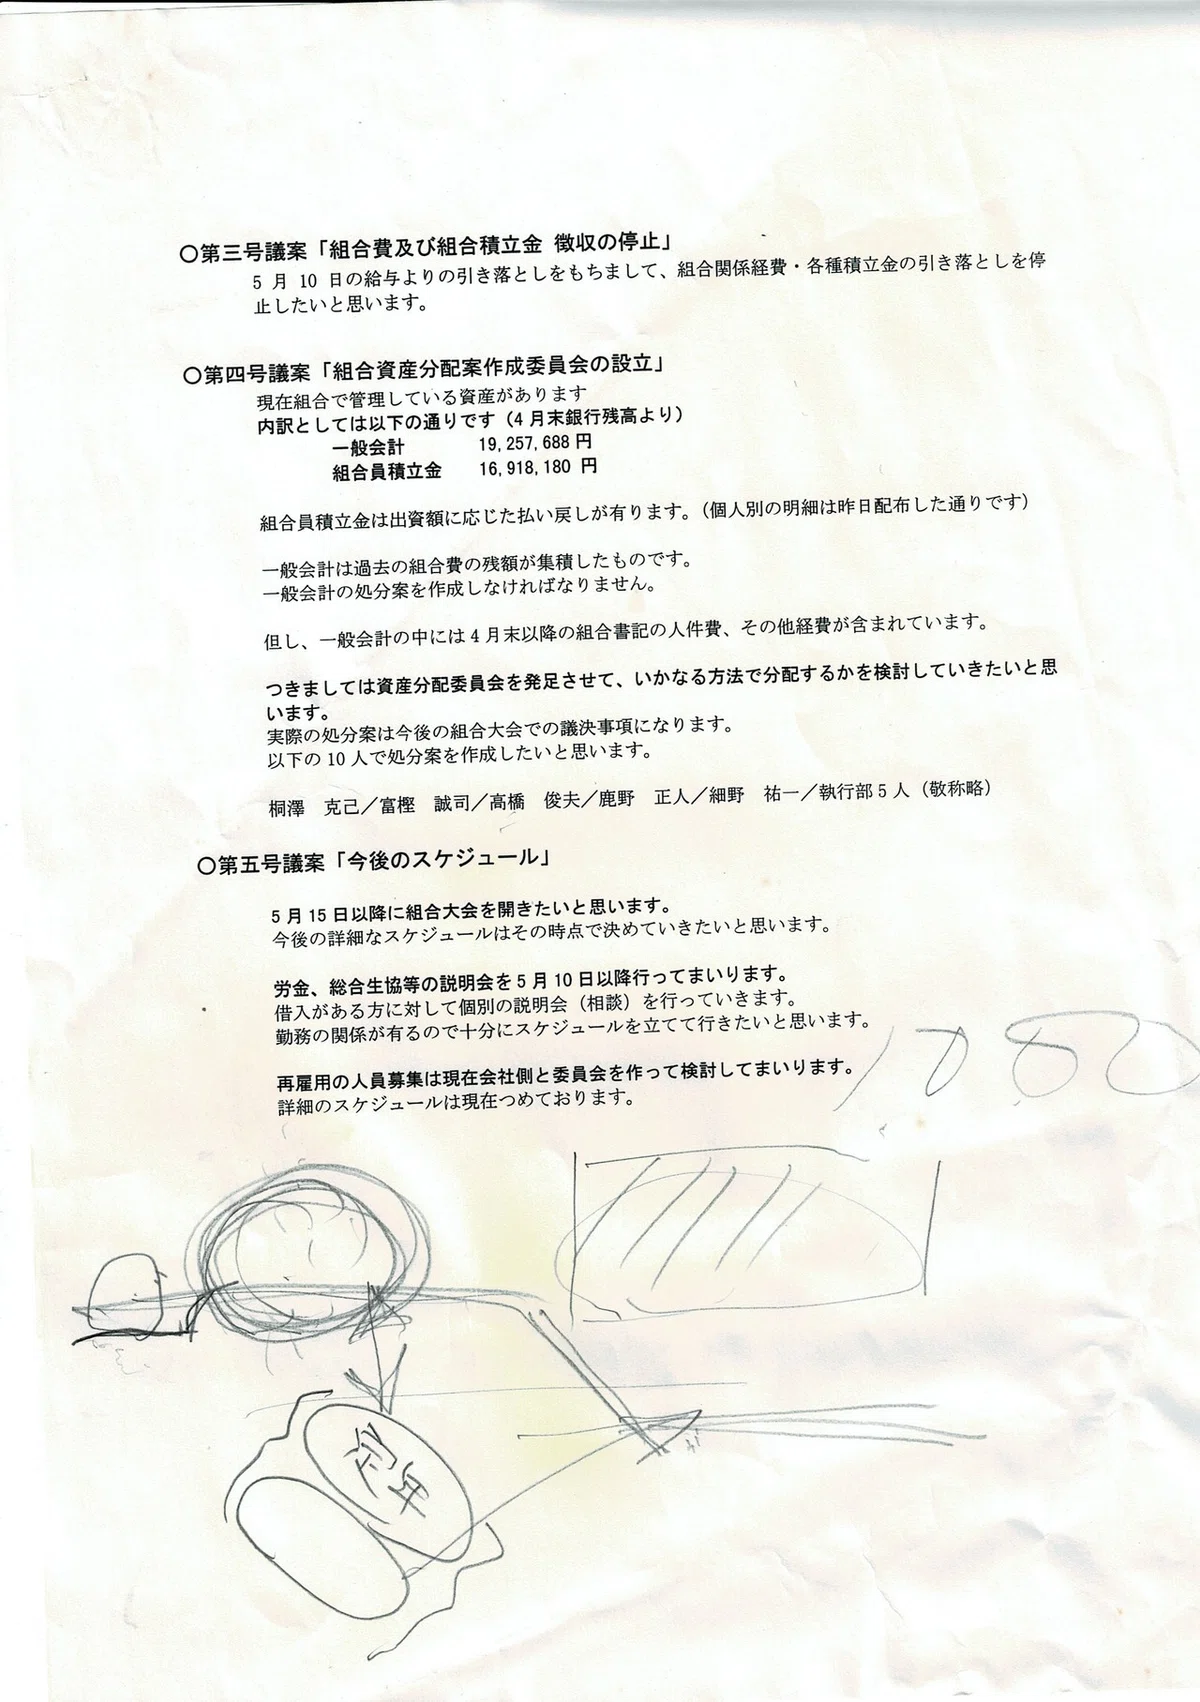 〇第三号議案「組合費及び組合積立金 徴収の停止」
5 月 10 日の給与よりの引き落としをもちまして、組合関係経費・各種積立金の引き落としを停
止したいと思います。
〇第四号議案「組合資産分配案作成委員会の設立」
現在組合で管理している資産があります
内訳としては以下の通りです（4月末銀行残高より）
一般会計 19,257,688 円
組合員積立金 16,918,180 円
組合員積立金は出資額に応じた払い戻しが有ります。（個人別の明細は昨日配布した通りです）
一般会計は過去の組合費の残額が集積したものです。
一般会計の処分案を作成しなければなりません。
但し、一般会計の中には４月末以降の組合書記の人件費、その他経費が含まれています。
つきましては資産分配委員会を発足させて、いかなる方法で分配するかを検討していきたいと思
います。
実際の処分案は今後の組合大会での議決事項になります。
以下の 10 人で処分案を作成したいと思います。
桐澤　克己／富樫　誠司／高橋　俊夫／鹿野　正人／細野　祐一／執行部５人（敬称略）
〇第五号議案「今後のスケジュール」
5月15日以降に組合大会を開きたいと思います。
今後の詳細なスケジュールはその時点で決めていきたいと思います。
労金、総合生協等の説明会を5月10日以降行ってまいります。
借入がある方に対して個別の説明会（相談）を行っていきます。
勤務の関係が有るので十分にスケジュールを立てて行きたいと思います。
再雇用の人員募集は現在会社側と委員会を作って検討してまいります。
詳細のスケジュールは現在つめております。
定年